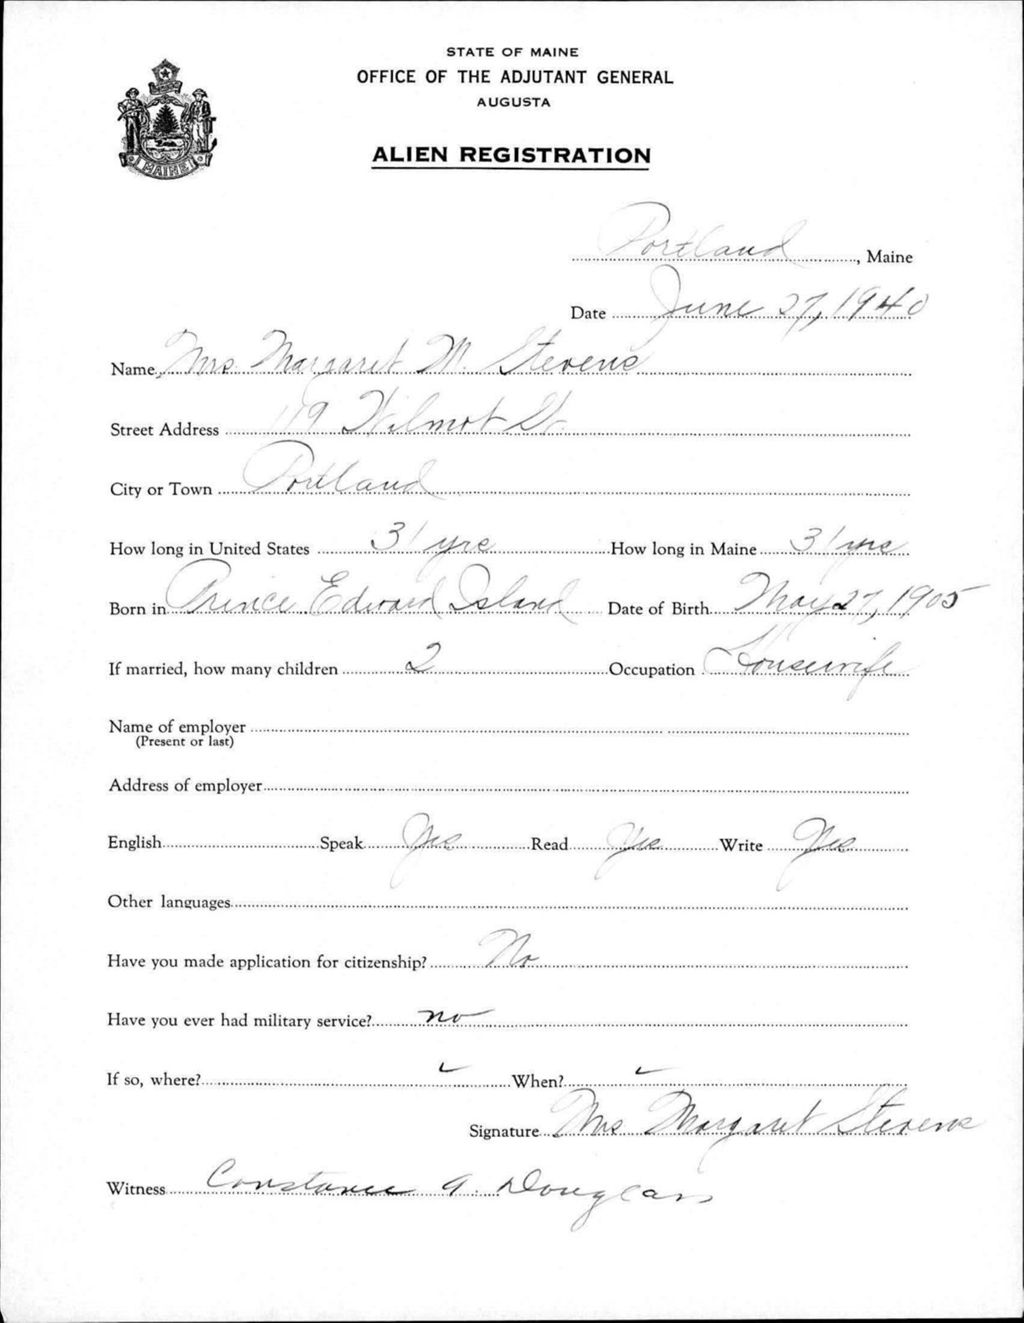 STATE OF MAINE
OFFICE OF THE ADJUTANT GENERAL
AUGUSTA
ALIEN REGISTRATION
MAINE
Portland, Maine
Date June 27, 1940
Name Mrs Margaret M. Stevens
Street Address 119 Wilmot St.
City or Town Portland
How long in United States 31 yrs How long in Maine 31 yrs
Born in Prince Edward Island Date of Birth May 27, 1905
If married, how many children 2 Occupation Housewife
Name of employer
(Present or last)
Address of employer
English Speak Yes Read Yes Write Yes
Other languages
Have you made application for citizenship? No
Have you ever had military service? no
If so, where? ✓ When? ✓
Signature Mrs Margaret Stevens
Witness Constance A. Douglass